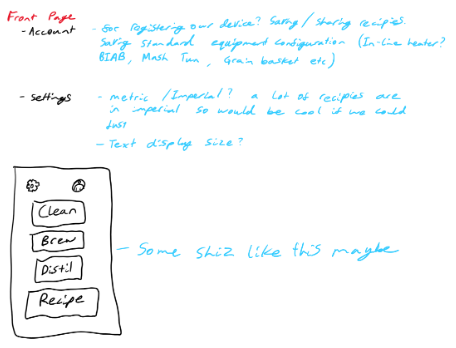 Front Page
- Account - For registering our device? Saving / sharing recipies.
Saving standard equipment configuration (In-line heater?
BIAB, Mash Tun, Grain basket etc)
- Settings - metric / Imperial? a lot of recipies are
in imperial so would be cool if we could
just
- Text display size?
Clean
Brew
Distil
Recipe
- Some shiz like this maybe